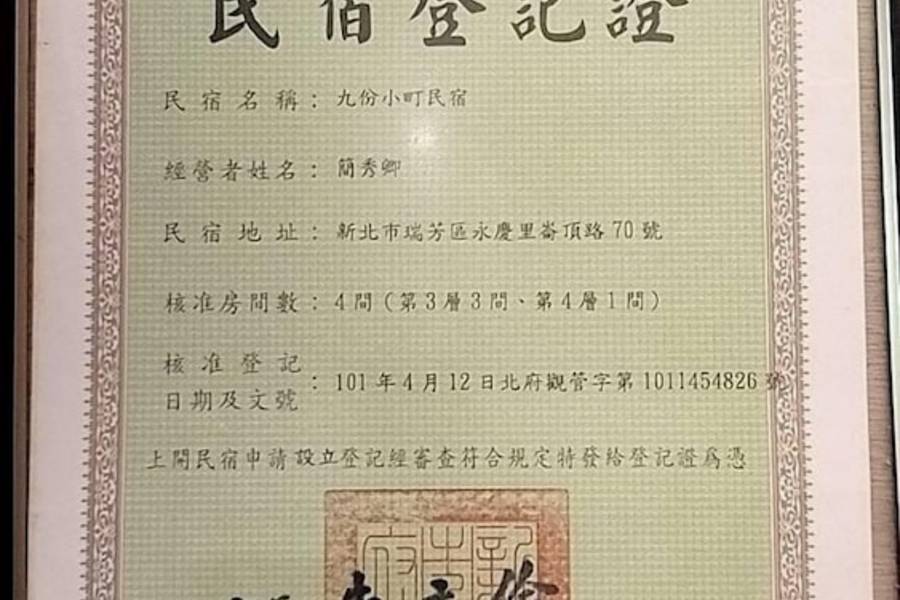 民宿登記證
民宿名稱：九份小町民宿
經營者姓名：簡秀卿
民宿地址：新北市瑞芳區永慶里崙頂路70號
核准房間數：4間（第3層3間、第4層1間）
核准登記
日期及文號：101年4月12日北府觀管字第1011454826號
上開民宿申請設立登記經審查符合規定特發給登記證為憑